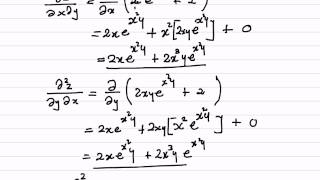 ∂x∂y = ∂/∂x ( e^{x²y} + 2 )
= 2xe^{x²y} + x²[2xye^{x²y}] + 0
= 2xe^{x²y} + 2x³ye^{x²y}
∂²z/∂y∂x = ∂/∂y (2xye^{x²y} + 2)
= 2xe^{x²y} + 2xy[x²e^{x²y}] + 0
= 2xe^{x²y} + 2x³ye^{x²y}